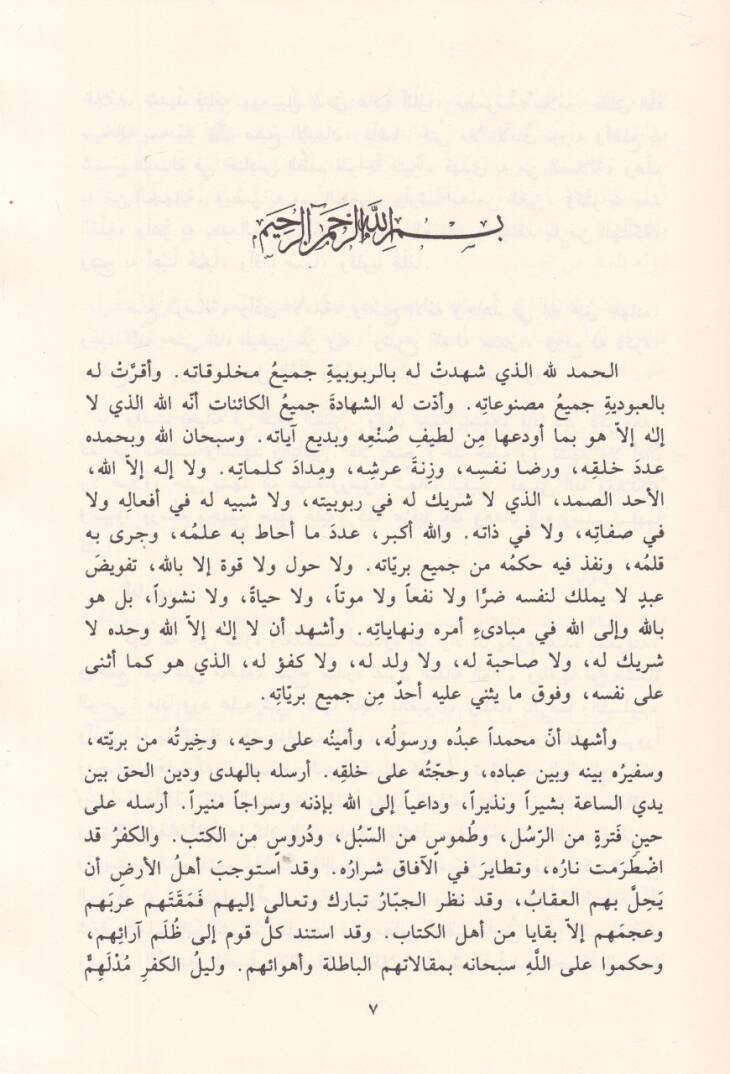 بسم الله الرحمن الرحيم
الحمد لله الذي شهدتْ له بالربوبيةِ جميعُ مخلوقاته. وأقرَّتْ له
بالعبوديةِ جميعُ مصنوعاتِه. وأدّت له الشهادةَ جميعُ الكائنات أنّه الله الذي لا
إلٰه إلاّ هو بما أودعها مِن لطيفِ صُنْعِه وبديع آياته. وسبحان الله وبحمده
عددَ خلقِه، ورضا نفسِه، وزِنةَ عرشِه، ومِدادَ كلماتِه. ولا إلـه إلاّ الله،
الأحد الصمد، الذي لا شريك له في ربوبيته، ولا شبيه له في أفعالِه ولا
في صفاتِه، ولا في ذاته. والله أكبر، عددَ ما أحاط به علمُه، وجرى به
قلمُه، ونفذ فيه حكمُه من جميع بريّاته. ولا حول ولا قوة إلا بالله، تفويضَ
عبدٍ لا يملك لنفسه ضرًّا ولا نفعاً ولا موتاً، ولا حياةً، ولا نشوراً، بل هو
بالله وإلى الله في مبادىءِ أمره ونهاياتِه. وأشهد أن لا إلٰه إلاّ الله وحده لا
شريك له، ولا صاحبة له، ولا ولد له، ولا كفؤ له، الذي هو كما أثنى
على نفسه، وفوق ما يثني عليه أحدٌ مِن جميع بريّاتِه.
وأشهد أنّ محمداً عبدُه ورسولُه، وأمينُه على وحيه، وخِيرتُه من بريّته،
وسفيرُه بينه وبين عباده، وحجّتُه على خلقِه. أرسله بالهدى ودين الحق بين
يدي الساعة بشيراً ونذيراً، وداعياً إلى الله بإذنه وسراجاً منيراً. أرسله على
حينِ فَترةٍ من الرّسُل، وطُموسٍ من السّبُل، ودُروسٍ من الكتب. والكفرُ قد
اضْطَرَمت نارُه، وتطايرَ في الآفاق شرارُه. وقد استوجبَ أهلُ الأرضِ أن
يَحِلَّ بهم العقابُ، وقد نظر الجبّارُ تبارك وتعالى إليهم فَمَقَتَهم عربَهم
وعجمَهم إلاّ بقايا من أهل الكتاب. وقد استند كلُّ قوم إلى ظُلَم آرائِهم،
وحكموا على اللَّهِ سبحانه بمقالاتهم الباطلة وأهوائهم. وليلُ الكفرِ مُدْلَهِمٌّ
٧